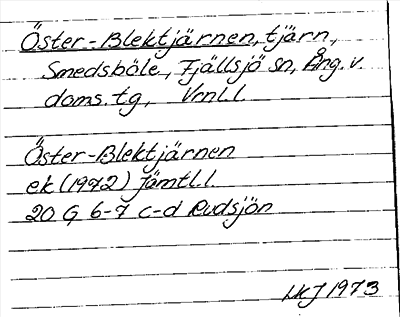 Öster-Blektjärnen, tjärn,
Smedsböle, Fjällsjö sn, Ång. v.
doms. tg, Vrnl. l.
Öster-Blektjärnen
ek (1972) Jämtl. l.
20 G 6-7 c-d Rudsjön
1973